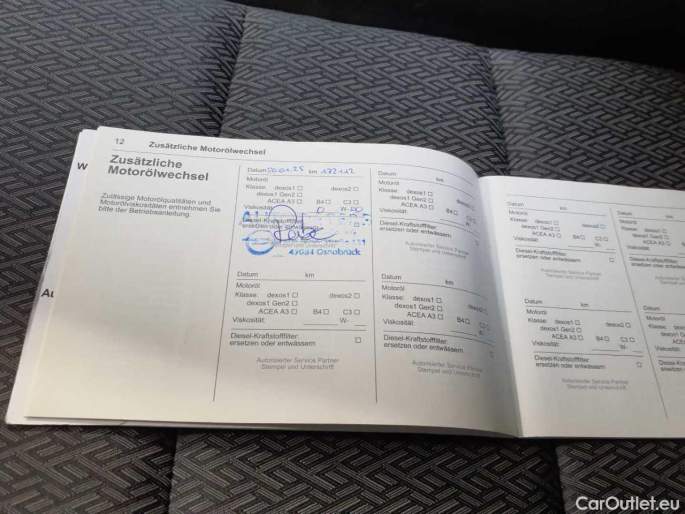 12 Zusätzliche Motorölwechsel
Zusätzliche
Motorölwechsel
Zulässige Motorölqualitäten und
Motorölviskositäten entnehmen Sie
bitte der Betriebsanleitung.
Datum km
Motoröl
Klasse: dexos1 ☐ dexos2 ☐
dexos1 Gen2 ☐
ACEA A3 ☐ B4 ☐ C3 ☐
Viskosität: W-
Diesel-Kraftstofffilter:
ersetzen oder entwässern ☐
49084 Osnabrück
Datum km
Motoröl
Klasse: dexos1 ☐ dexos2 ☐
dexos1 Gen2 ☐
ACEA A3 ☐ B4 ☐ C3 ☐
Viskosität: W-
Diesel-Kraftstofffilter:
ersetzen oder entwässern ☐
Autorisierter Service Partner
Stempel und Unterschrift
Datum km
Motoröl
Klasse: dexos1 ☐ dexos2 ☐
dexos1 Gen2 ☐
ACEA A3 ☐ B4 ☐ C3 ☐
Viskosität: W-
Diesel-Kraftstofffilter:
ersetzen oder entwässern ☐
Autorisierter Service Partner
Stempel und Unterschrift
Datum km
Motoröl
Klasse: dexos1 ☐ dexos2 ☐
dexos1 Gen2 ☐
ACEA A3 ☐ B4 ☐ C3 ☐
Viskosität: W-
Diesel-Kraftstofffilter:
ersetzen oder entwässern ☐
Autorisierter Service Partner
Stempel und Unterschrift
Datum km
Motoröl
Klasse: dexos1 ☐ dexos2 ☐
dexos1 Gen2 ☐
ACEA A3 ☐ B4 ☐ C3 ☐
Viskosität: W-
Diesel-Kraftstofffilter:
ersetzen oder entwässern ☐
Autorisierter Service Partner
Stempel und Unterschrift
Datum km
Motoröl
Klasse: dexos1 ☐ dexos2 ☐
dexos1 Gen2 ☐
ACEA A3 ☐ B4 ☐ C3 ☐
Viskosität: W-
Diesel-Kraftstofffilter:
ersetzen oder entwässern ☐
Autorisierter Service Partner
Stempel und Unterschrift
CarOutlet.eu